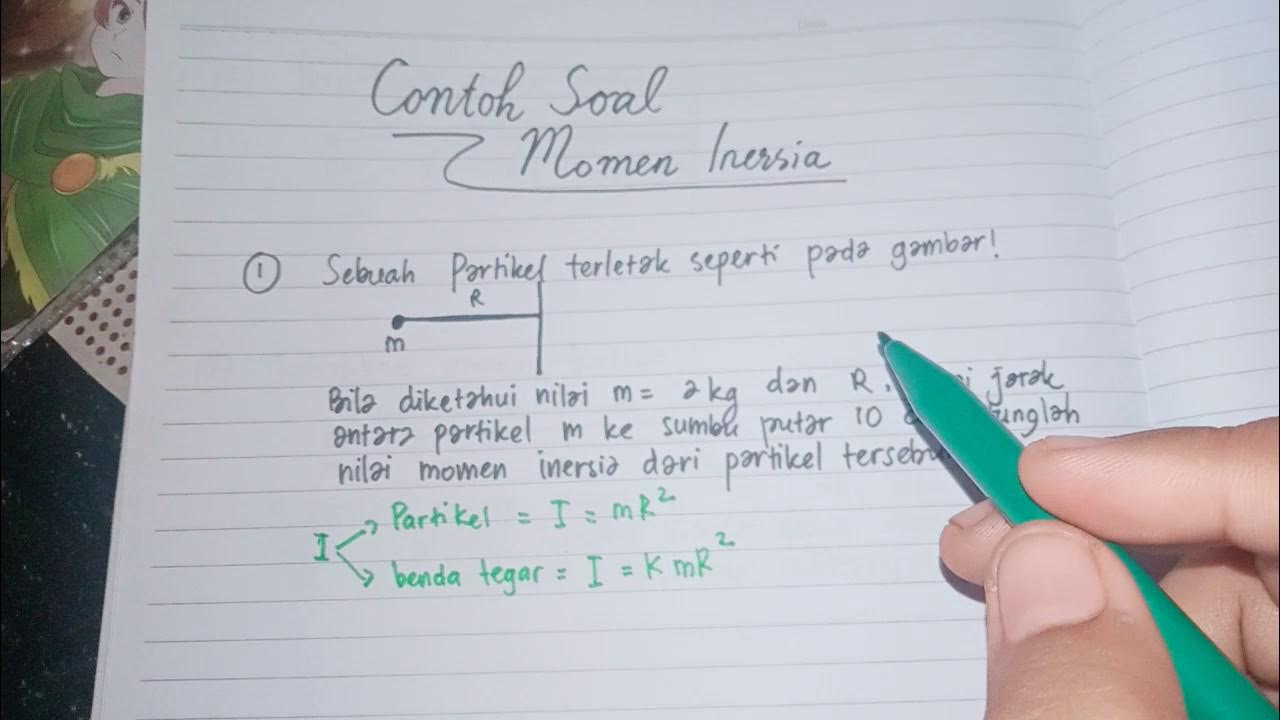 Contoh Soal
Momen Inersia
① Sebuah Partikel terletak seperti pada gambar!
R
m
Bila diketahui nilai m = 2 kg dan R jarak
antara partikel m ke sumbu putar 10
nilai momen inersia dari partikel
I
Partikel = I = mR²
benda tegar = I = K mR²